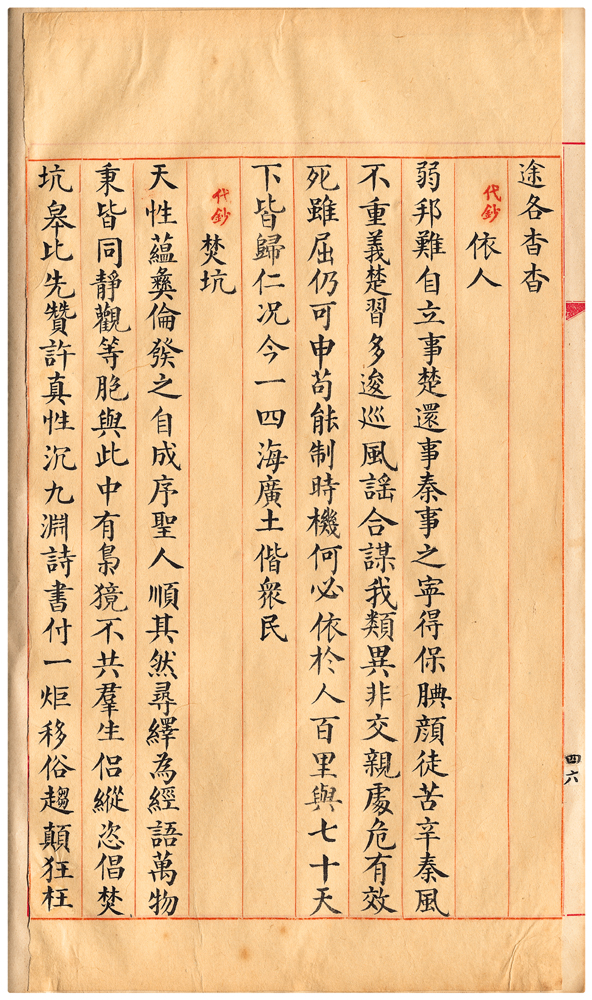 途各杳杳
代鈔
依人
弱邦難自立事楚還事秦事之寧得保腆顔徒苦辛秦風
不重義楚習多逡巡風謠合謀我類異非交親處危有效
死雖屈仍可申苟能制時機何必依於人百里與七十天
下皆歸仁况今一四海廣土偕衆民
代鈔
焚坑
天性蘊彜倫發之自成序聖人順其然尋繹為經語萬物
秉皆同靜觀等胞與此中有梟獍不共羣生侶縱恣倡焚
坑皋比先贊許真性沉九淵詩書付一炬移俗趨顛狂枉
四六